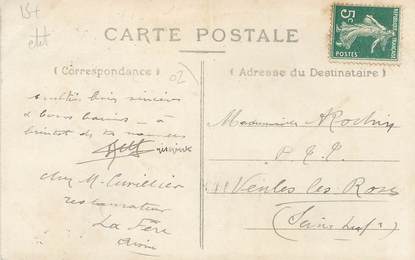 15+
02)
CARTE POSTALE
5c
POSTES
( Correspondance )
( Adresse du Destinataire )
amitiés bien sincères
& bons baisers - à
bientôt de tes
Mademoiselle A Rochis
P.T.T.
chez M. Cuvillier
restaurateur
La Fère
Aisne
Veules les Roses
(Seine Inf re)